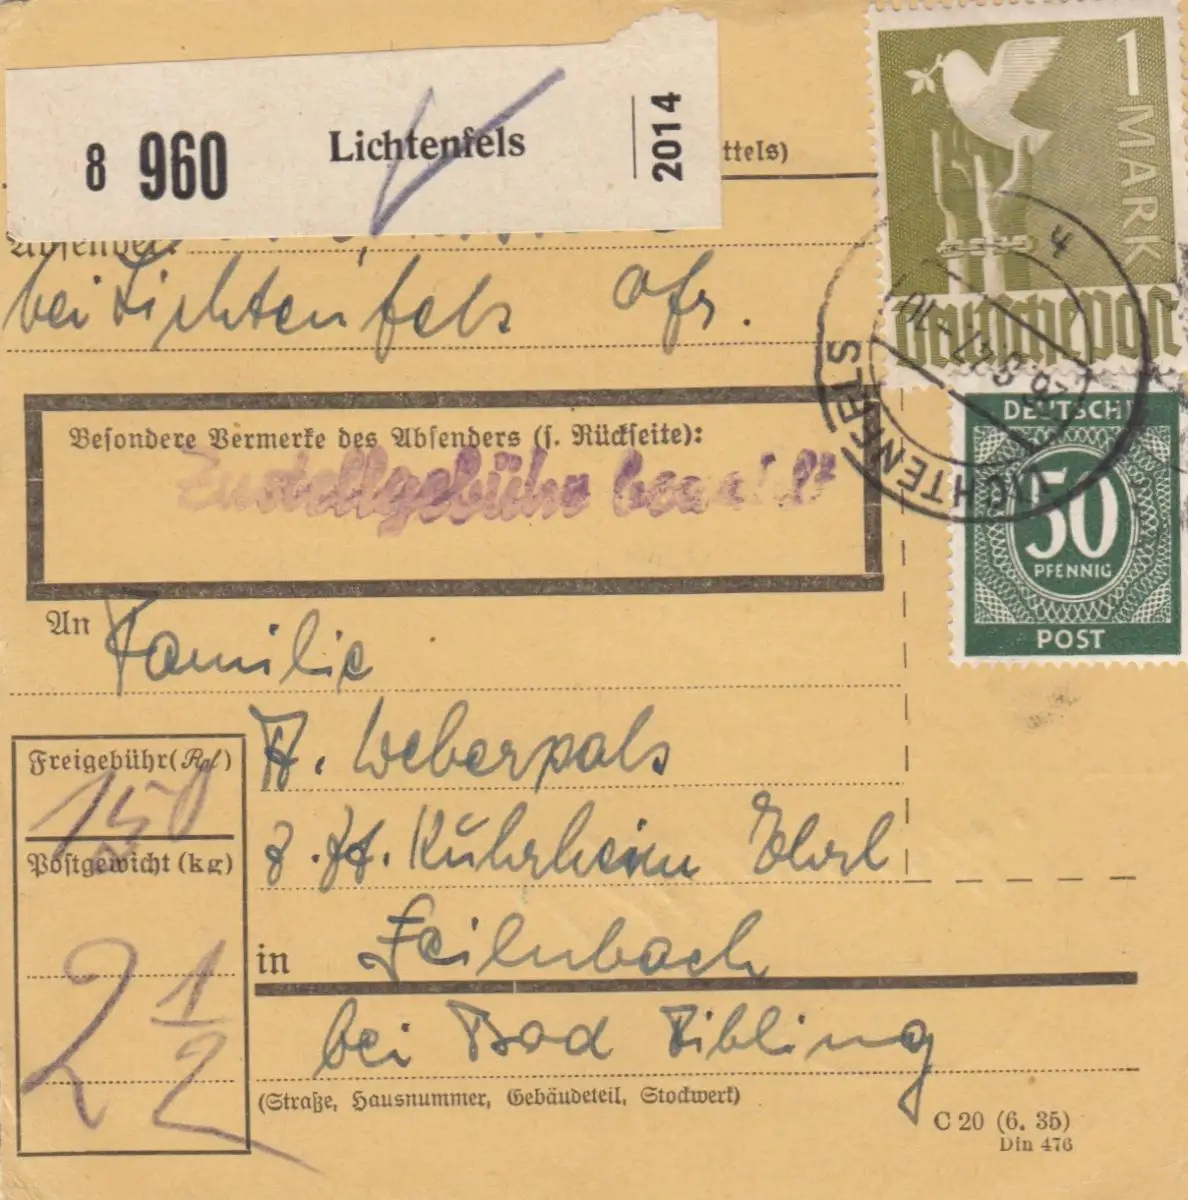 8 960 Lichtenfels 2014
ttels)
Absender:
bei Lichtenfels Ofr.
1 MARK
Deutsche Post
LICHTENFELS
DEUTSCHE
50
PFENNIG
POST
Besondere Vermerke des Absenders (s. Rückseite):
Zustellgebühr bezahlt
An Familie
A. Weberpals
z. Zt. Kuhrheim Ehrl
in Feilnbach
bei Bad Aibling
(Straße, Hausnummer, Gebäudeteil, Stockwerk)
Freigebühr (Rpf)
150
Postgewicht (kg)
2 1/2
C 20 (6. 35)
Din 476